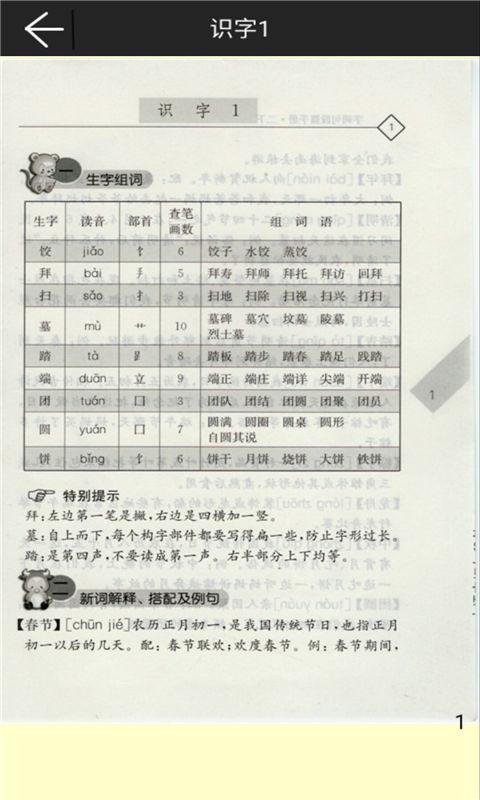 识字1
识 字 1
1
一 生字组词
生字 读音 部首 查笔画数 组 词 语
饺 jiǎo 饣 6 饺子 水饺 蒸饺
拜 bài 手 5 拜寿 拜师 拜托 拜访 回拜
扫 sǎo 扌 3 扫地 扫除 扫视 扫兴 打扫
墓 mù 艹 10 墓碑 墓穴 坟墓 陵墓
烈士墓
踏 tà 𧾷 8 踏板 踏步 踏春 踏足 践踏
端 duān 立 9 端正 端庄 端详 尖端 开端
团 tuán 囗 3 团队 团结 团圆 团聚 团员
圆 yuán 囗 7 圆满 圆圈 圆桌 圆形
自圆其说
饼 bǐng 饣 6 饼干 月饼 烧饼 大饼 铁饼
特别提示
拜:左边第一笔是撇,右边是四横加一竖。
墓:自上而下,每个构字部件都要写得扁一些,防止字形过长。
踏:是第四声,不要读成第一声。右半部分上下均等。
二 新词解释、搭配及例句
【春节】[chūn jié]农历正月初一,是我国传统节日,也指正月
初一以后的几天。配:春节联欢;欢度春节。例:春节期间,
1
1